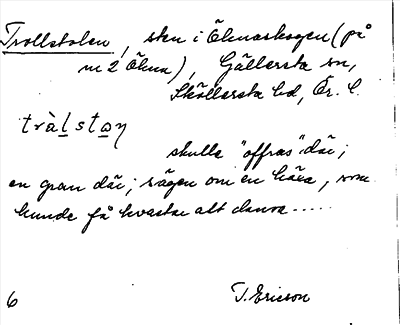 Trollstolen, sten i Öknaskogen (på
m 2 Ökna), Gällersta sn,
Sköllersta hd, Ör. l.
tràlstoŋ
skulle "offras" där;
en gran där; sägen om en häxa, som
kunde få kvastar att dansa.....
6 T. Ericson